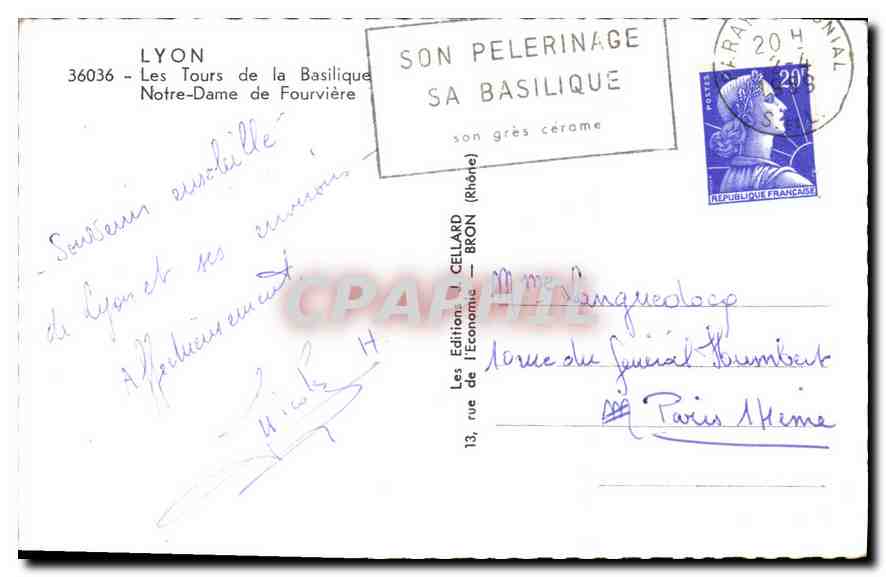 LYON
36036 - Les Tours de la Basilique
Notre-Dame de Fourvière
SON PELERINAGE
SA BASILIQUE
son grès cérame
20 H
POSTES
20F
REPUBLIQUE FRANÇAISE
- Souvenir ensoleillé
de Lyon et ses environs -
Affectueusement.
Nicole H.
Les Editions J. CELLARD
13, rue de l'Economie — BRON (Rhône)
CPAPHIL
Mme Languedocq
10 rue du Général Humbert
Paris 14ème